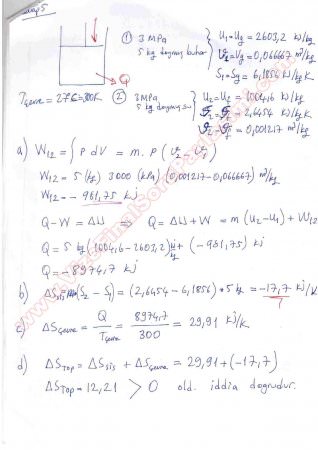 ① 3 MPa
5 kg doymuş buhar
U₁=Ug=2603,2 kJ/kg
ϑ₁=Vg=0,066667 m³/kg
S₁=Sg=6,1856 kJ/kg K
Q
Tçevre=27°C=300K
② 3 MPa
5 kg doymuş su
U₂=Uf=1004,6 kJ/kg
S₂=Sf=2,6454 kJ/kg K
ϑ₂=ϑf=0,001217 m³/kg
a) W₁₂=∫P dV = m. P (ϑ₂-ϑ₁)
W₁₂= 5 (kg) 3000 (kPa) (0,001217-0,066667)
W₁₂=- 981,75 kJ
Q-W=ΔU ⇒ Q=ΔU+W = m(U₂-U₁)+W₁₂
Q= 5 kg (1004,6-2603,2) kJ/kg + (-981,75) kJ
Q=-8974,7 kJ
b) ΔSsis=m(S₂-S₁)=(2,6454-6,1856)*5 kg=-17,7 kJ/K
c) ΔSçevre= Q/Tçevre = 8974,7/300 = 29,91 kJ/K
d) ΔSTop=ΔSsis+ΔSçevre=29,91+(-17,7)
ΔSTop=12,21 > 0 old. iddia doğrudur.